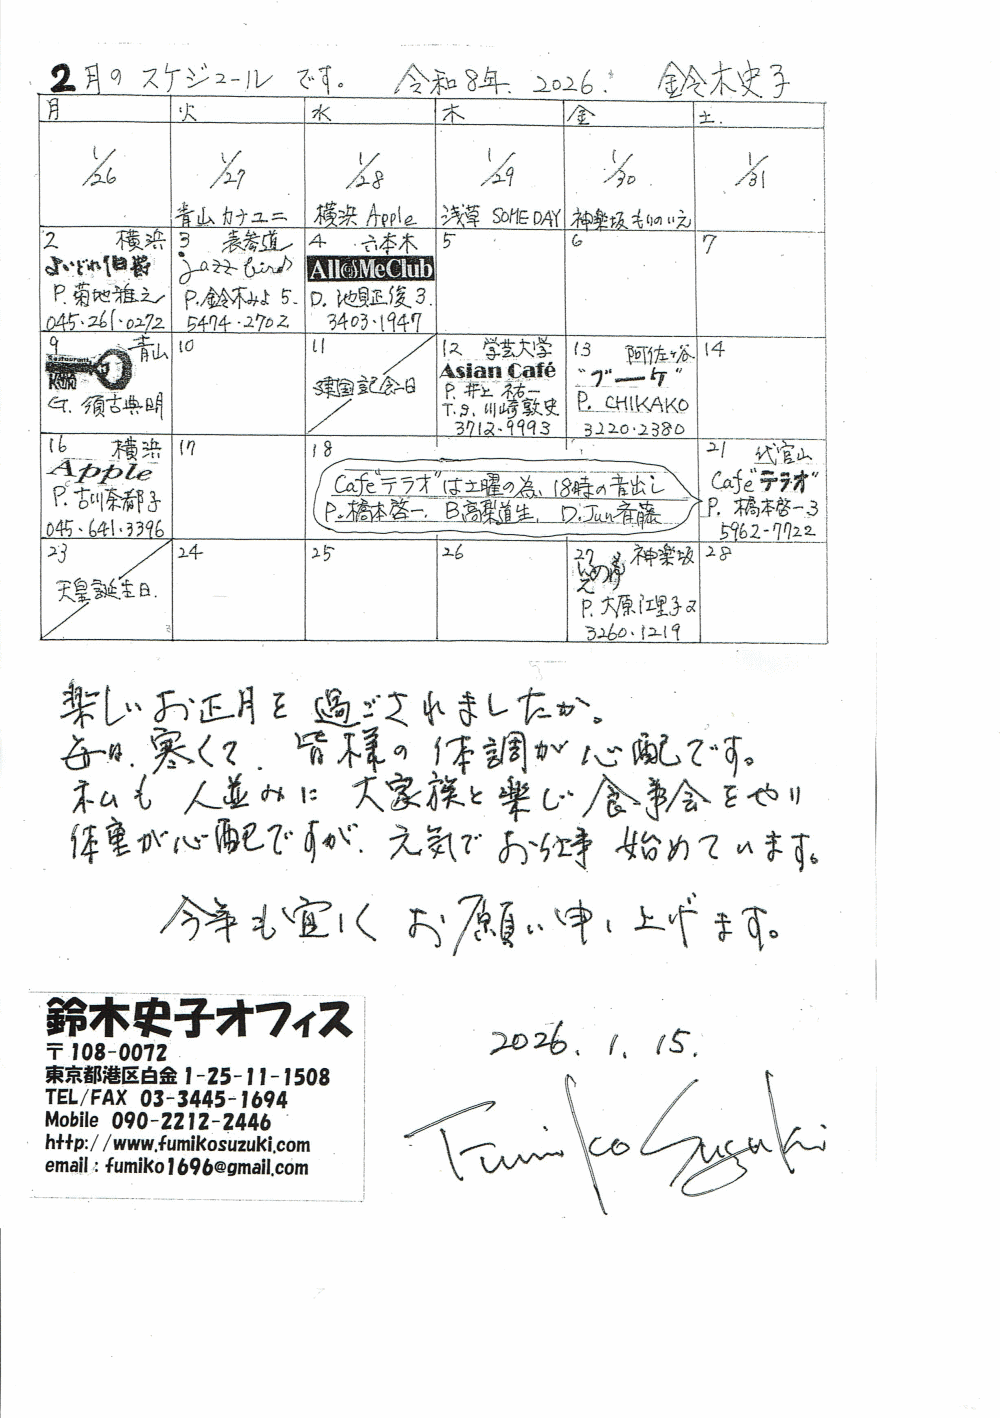 2月のスケジュールです。 令和8年. 2026. 鈴木史子
月 火 水 木 金 土.
1/26 1/27 1/28 1/29 1/30 1/31
青山 カナユニ 横浜 Apple 浅草 SOMEDAY 神楽坂 もりのいえ
2 横浜 3 表参道 4 六本木 5 6 7
よいどれ伯爵 jazz bird All of MeClub
P. 菊地雅之 P. 鈴木みよ 5. D. 池貝正俊 3.
045・261・0272 5474・2702 3403・1947
9 青山 10 11 12 学芸大学 13 阿佐ヶ谷 14
Restaurant 建国記念日 Asian Café "ブーケ"
G. 須古典明 P. 井上祐一 P. CHIKAKO
T.S. 川崎敦史 3220・2380
3712・9993
16 横浜 17 18 21 代官山
Apple Café "テラオ"は土曜の為、18時の音出し Café"テラオ"
P. 古川奈都子 P. 橋本啓一. B. 高梨道生. D. Jun斉藤 P. 橋本啓一 3
045・641・3396 5962-7722
23 24 25 26 27 神楽坂 28
天皇誕生日. もりのいえ
P. 大原江里子
3260・1219
楽しいお正月を過ごされましたか。
毎日、寒くて、皆様の体調が心配です。
私も人並みに大家族と楽しい食事会をやり
体重が心配ですが、元気でお仕事始めています。
今年も宜しくお願い申し上げます。
鈴木史子オフィス
〒108-0072
東京都港区白金1-25-11-1508
TEL/FAX 03-3445-1694
Mobile 090-2212-2446
http://www.fumikosuzuki.com
email : fumiko1696@gmail.com
2026. 1. 15.
Fumiko Suzuki